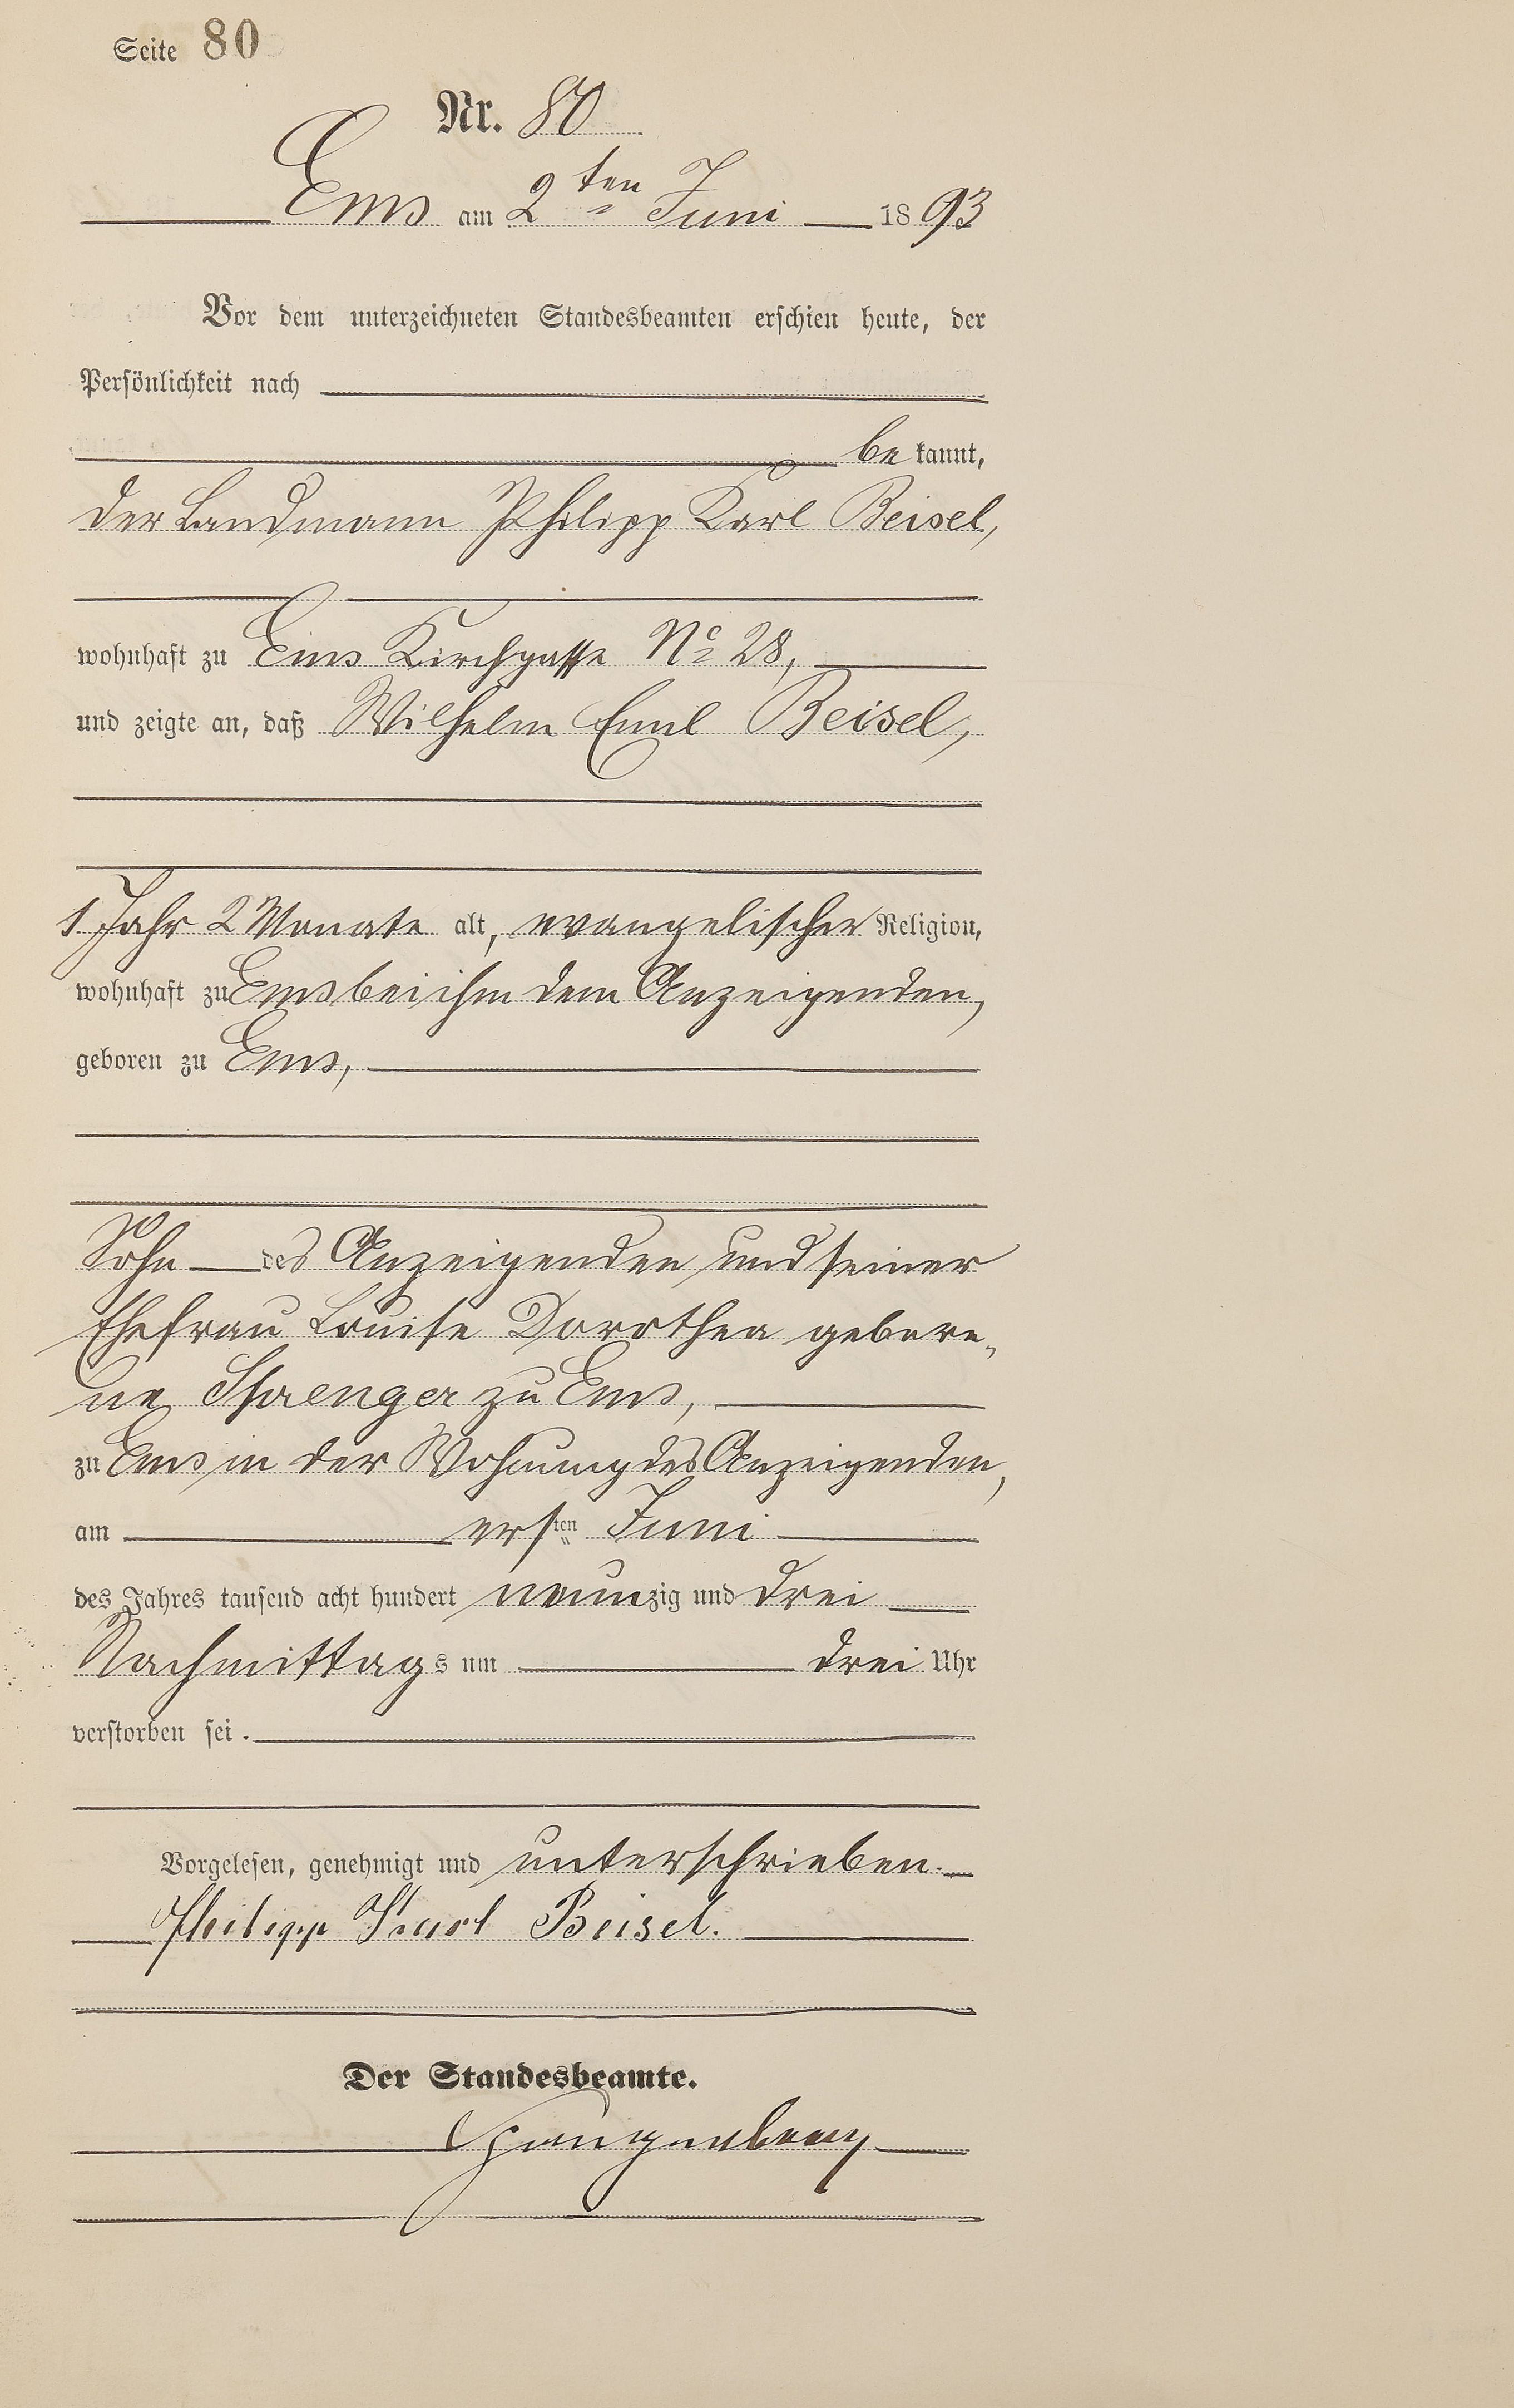 Seite 80
Nr. 80
Ems am 2ten Juni 1893
Vor dem unterzeichneten Standesbeamten erschien heute, der
Persönlichkeit nach
be kannt,
der Landmann Philipp Karl Beisel,
wohnhaft zu Ems Kirchgasse No 28,
und zeigte an, daß Wilhelm Emil Beisel,
1 Jahr 2 Monate alt, evangelischer Religion,
wohnhaft zu Ems bei ihm dem Anzeigenden,
geboren zu Ems,
Sohn des Anzeigenden und seiner
Ehefrau Louise Dorothea gebore-
ne zu Ems,
zu Ems in der Wohnung des Anzeigenden,
am ersten Juni
des Jahres tausend acht hundert neunzig und drei
Nachmittags um drei Uhr
verstorben sei.
Vorgelesen, genehmigt und unterschrieben.
Philipp Karl Beisel.
Der Standesbeamte.